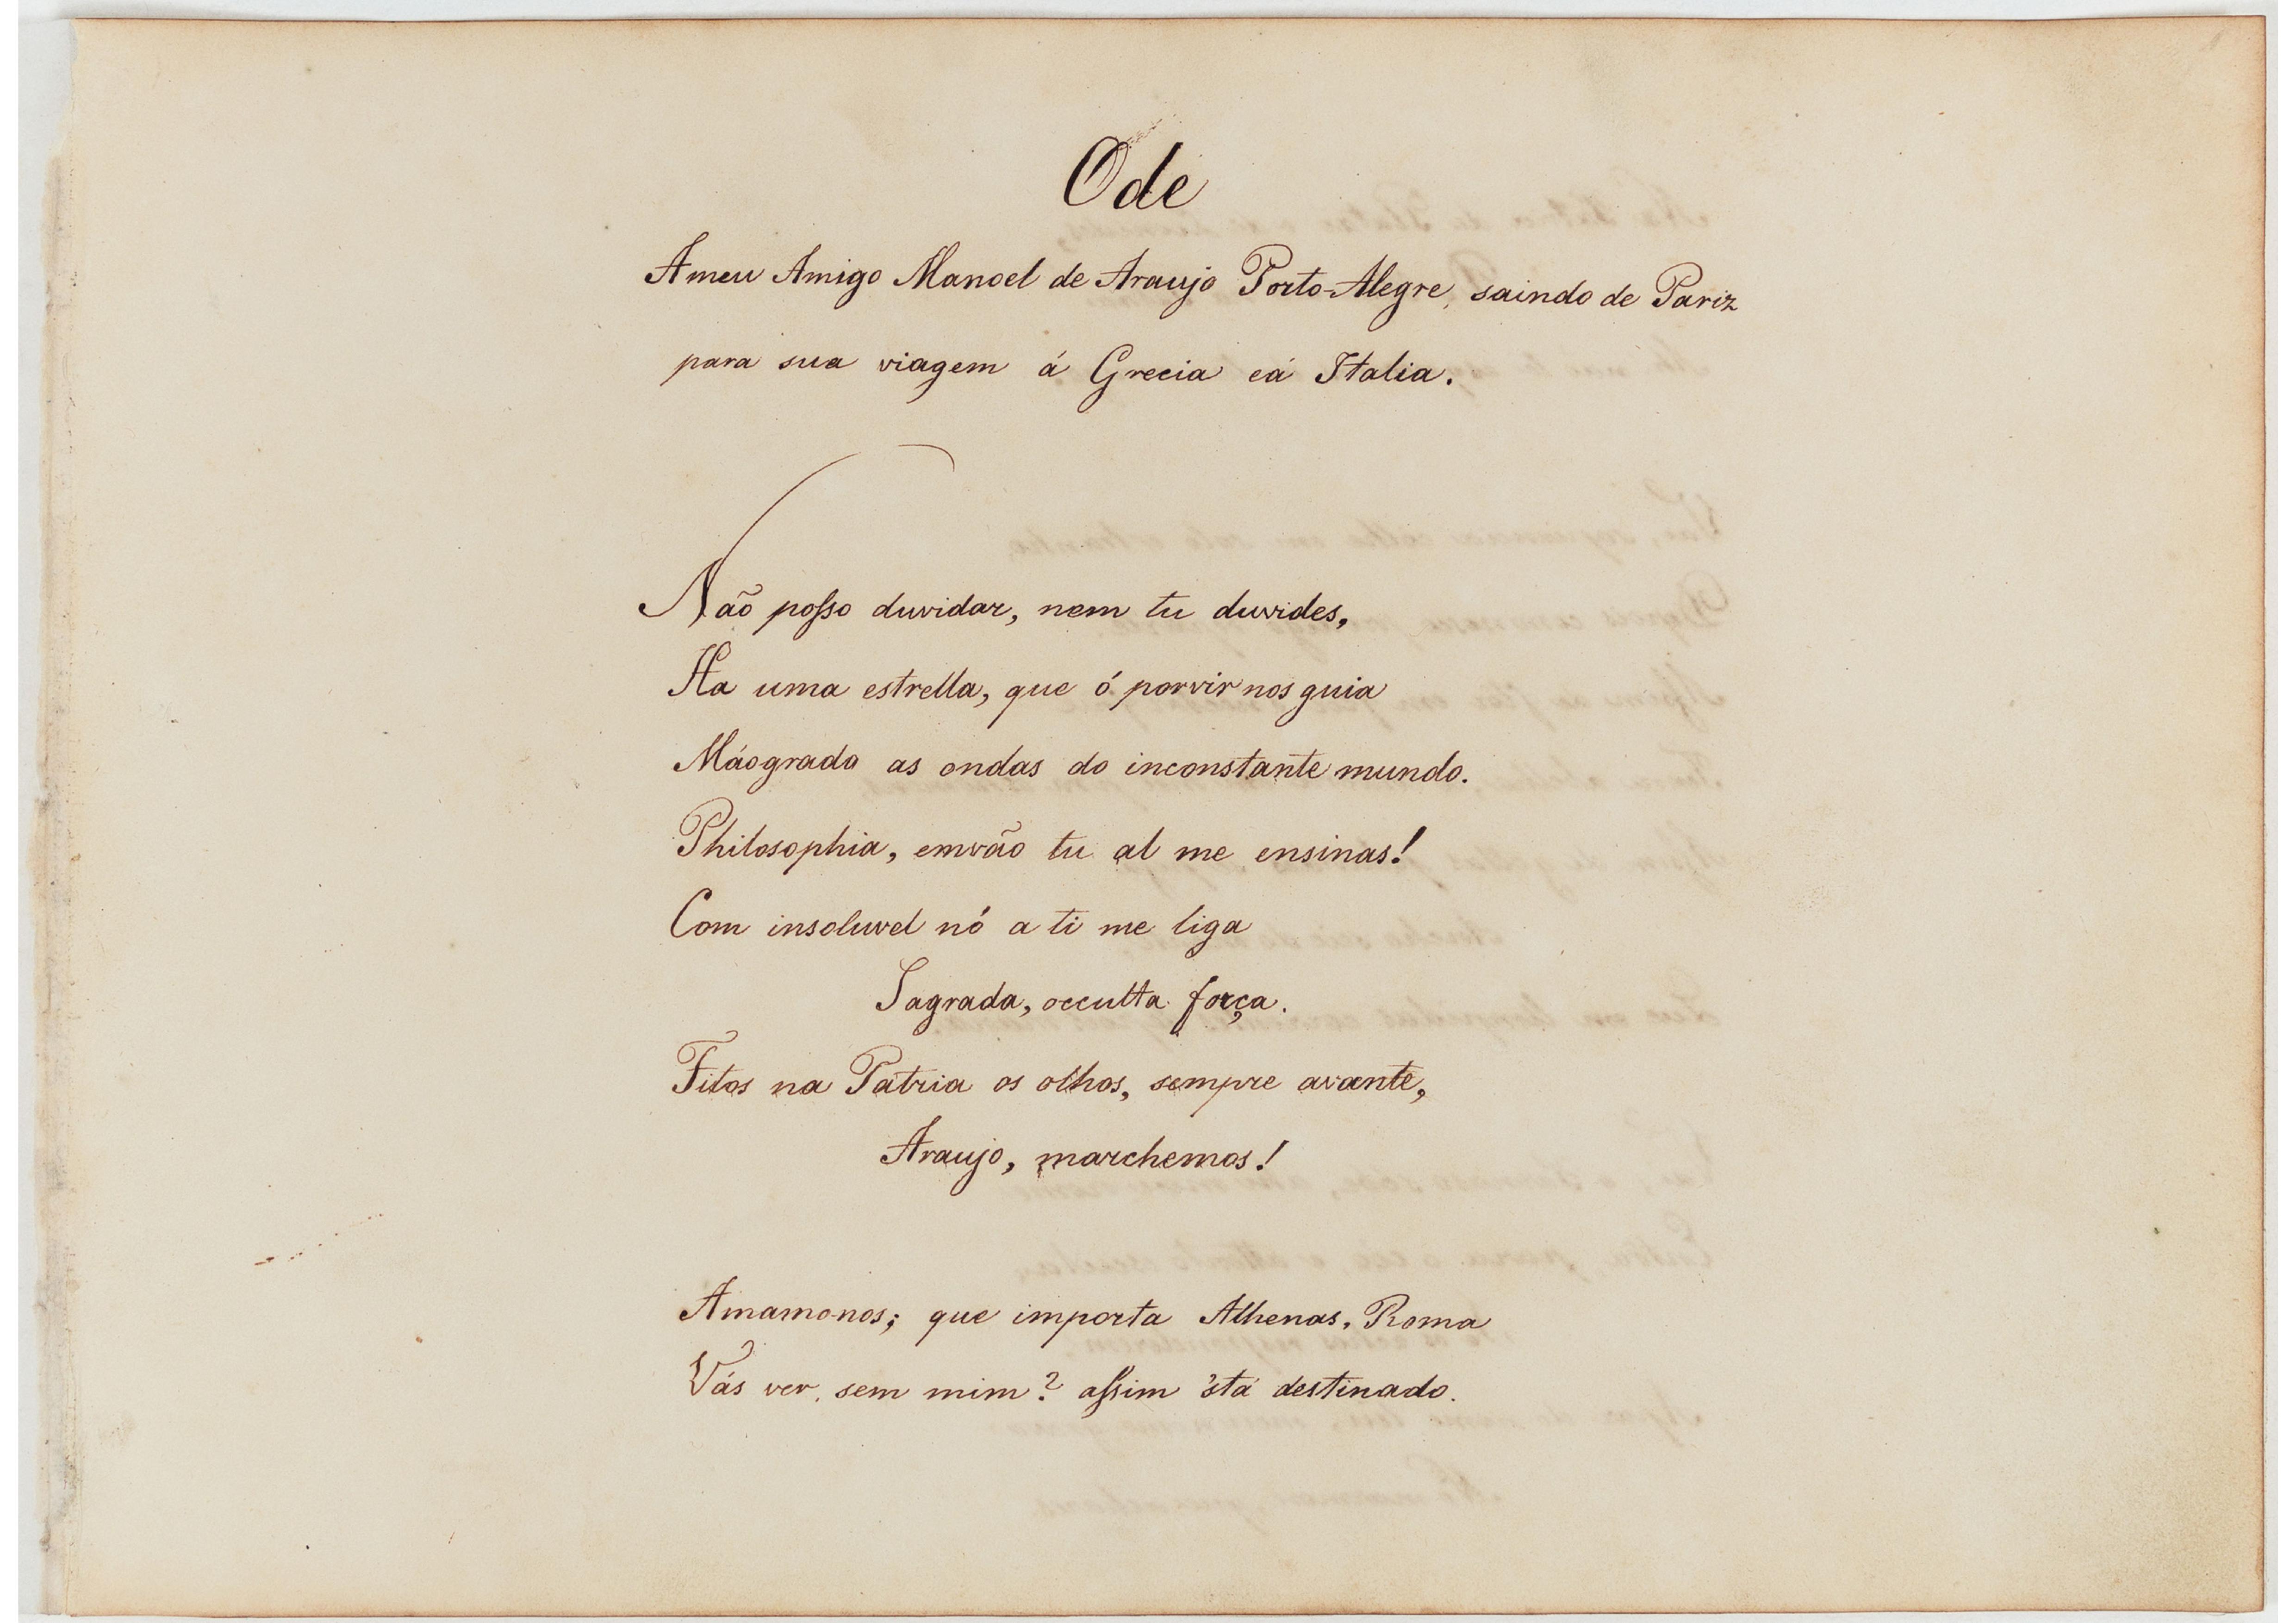 Ode
A meu Amigo Manoel de Araujo Porto-Alegre, saindo de Pariz
para sua viagem á Grecia e á Italia.
Não posso duvidar, nem tu duvides,
Ha uma estrella, que ó porvir nos guia
Máogrado as ondas do inconstante mundo.
Philosophia, em vão tu al me ensinas!
Com insoluvel nó a ti me liga
Sagrada, occulta força.
Fitos na Patria os olhos, sempre avante,
Araujo, marchemos!
Amamo-nos; que importa Athenas, Roma
Vás ver, sem mim? assim 'stá destinado.